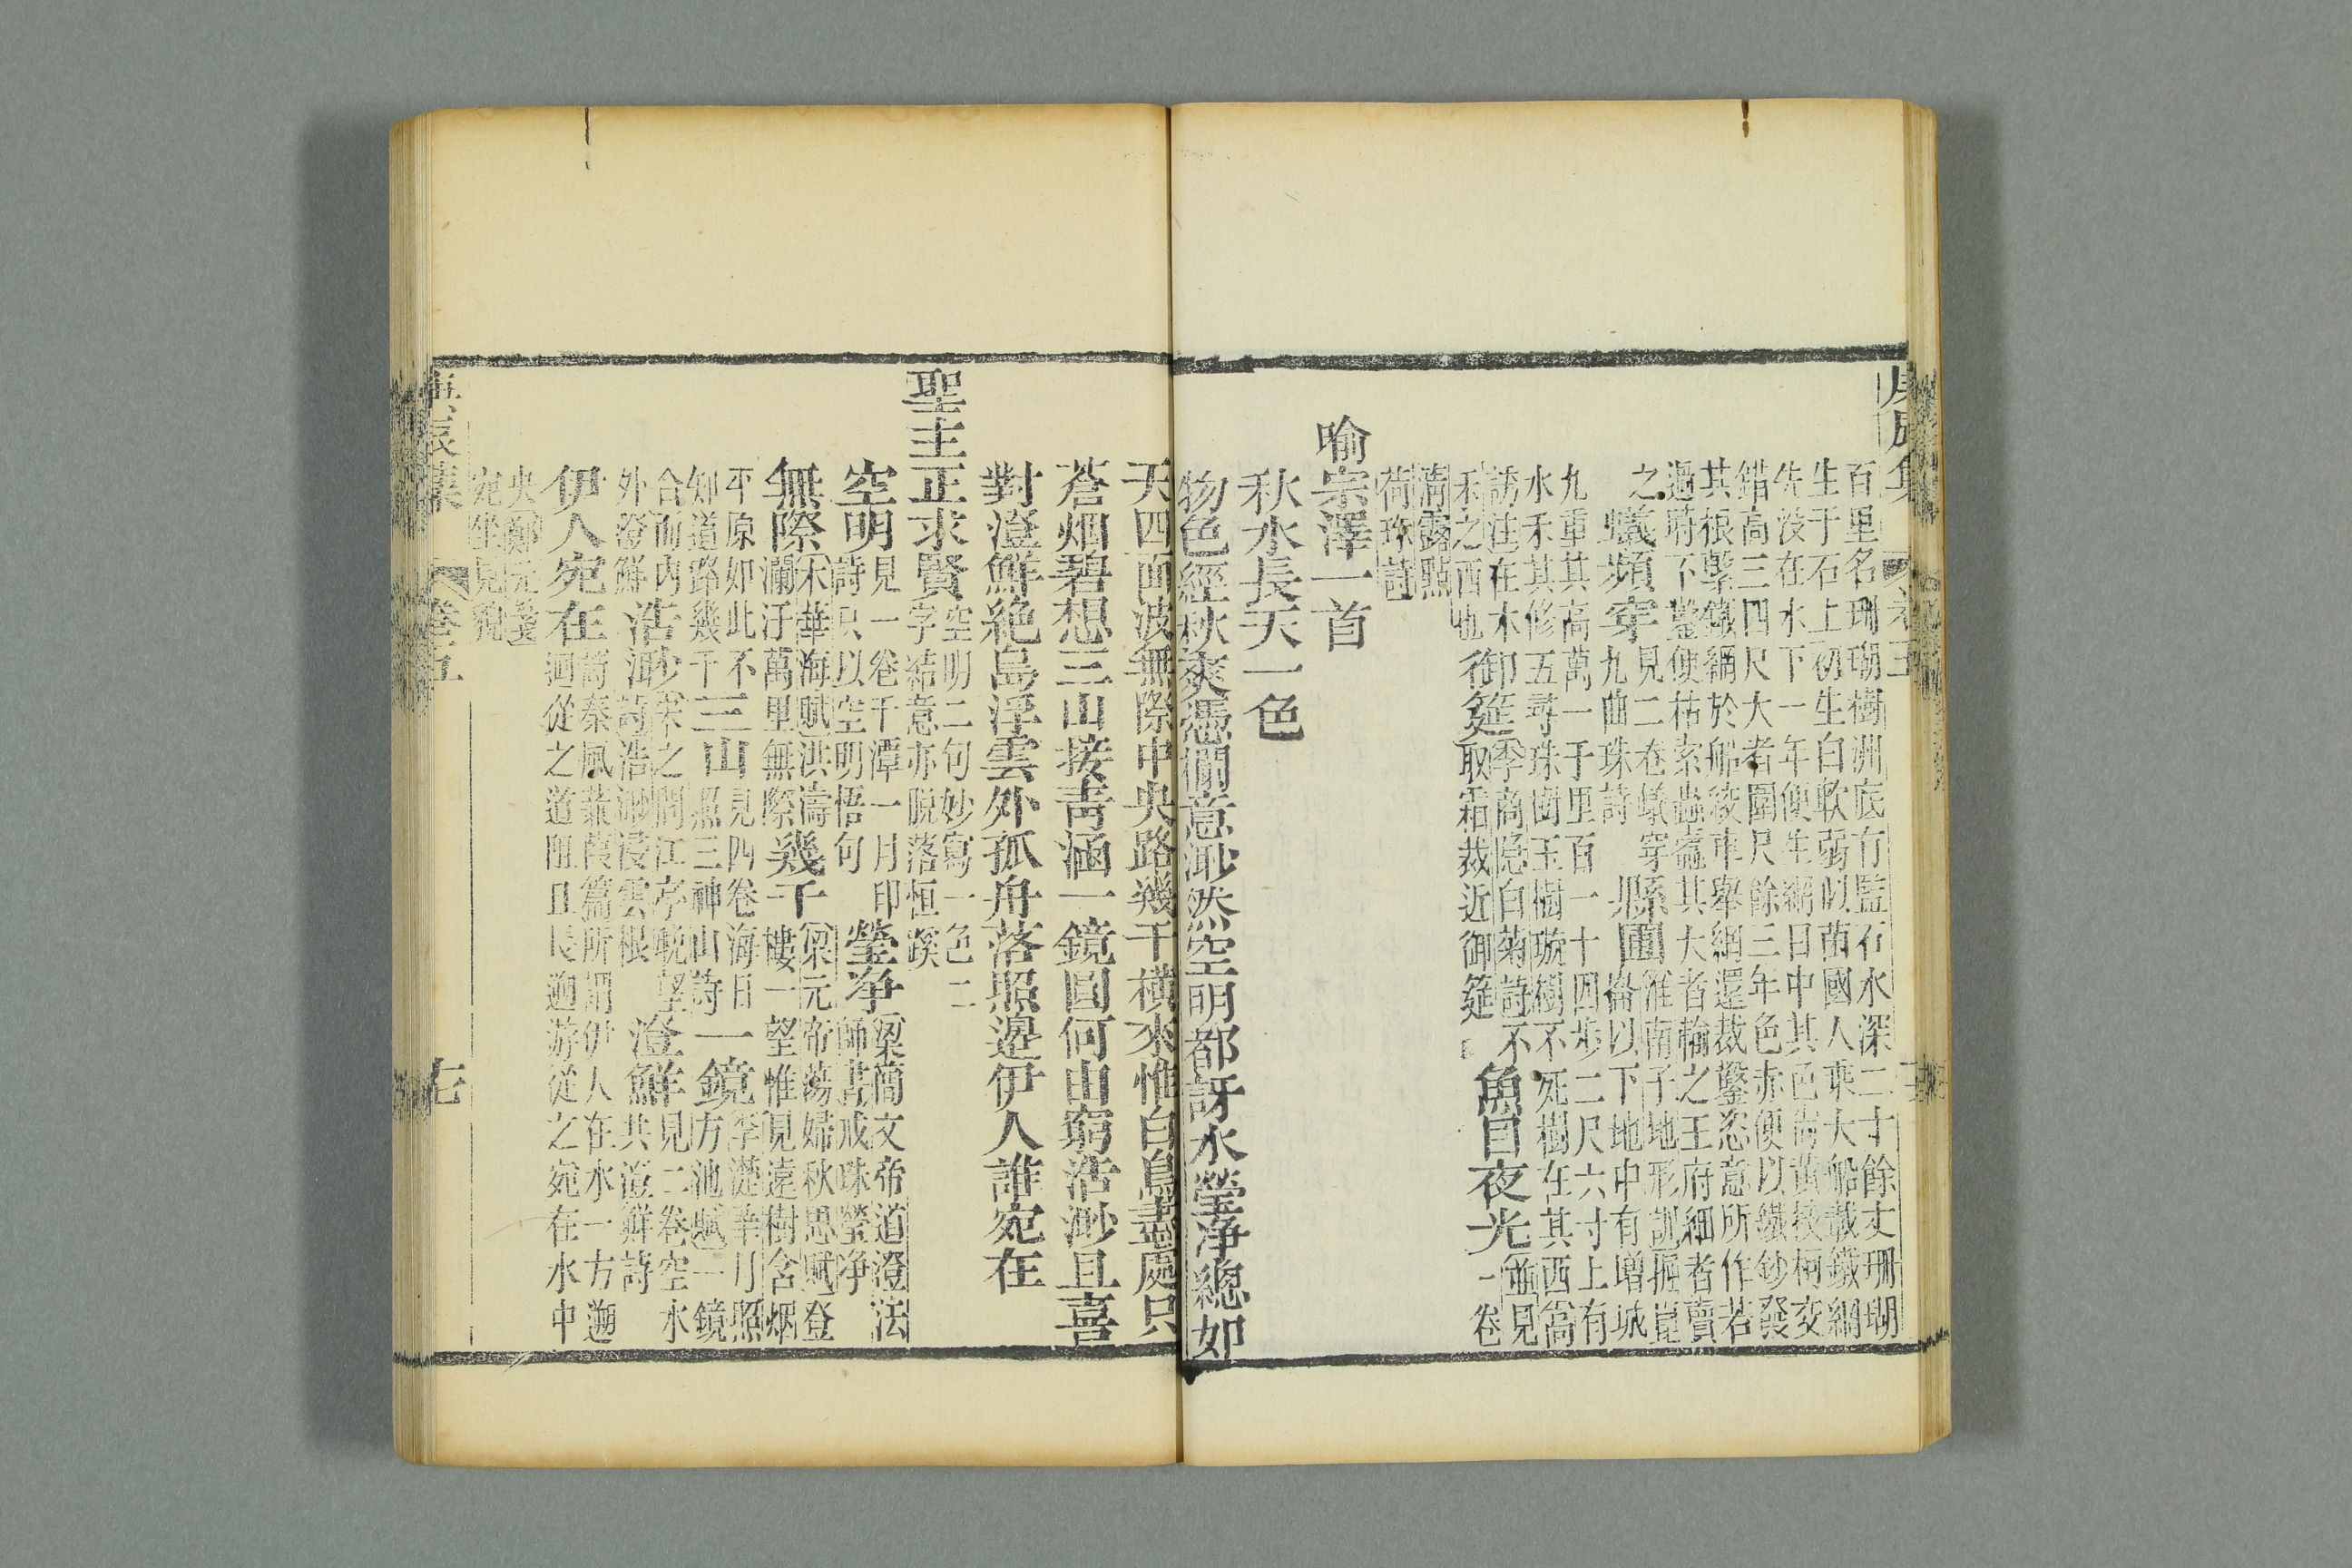 百里名珊瑚樹洲底有監石水深二十餘丈珊瑚
生于石上初生白軟弱似菌國人乘大船載鐵網
先沒在水下一年便生網目中其色尚黃枝柯交
錯高三四尺大者圍尺餘三年色赤便以鐵鈔發
其根繫鐵網於船絞車舉網還裁鑿恣意所作若
過時不鑿便枯索蟲蠹其大者輸之王府細者賣
之
蟻頻穿
見二卷蟻穿
九曲珠詩
縣圃
淮南子地形訓掘崑
崙以下地中有增城
九重其高萬一千里百一十四步二尺六寸上有
木禾其修五尋珠樹玉樹璇樹不死樹在其西篇
誘注在木
禾之西也
御筵
季商隱白菊詩不
取霜栽近御筵
魚目夜光
並見
一卷
清露點
荷珠詩
喻宗澤一首
秋水長天一色
物色經秋爽憑闌意渺然空明都訝水瑩淨總如
天四面波無際中央路幾千橫來惟白鳥盡處只
蒼烟碧想三山接青涵一鏡圓何由窮浩渺且喜
對澄鮮絶島浮雲外孤舟落照邊伊人誰宛在
聖主正求賢
空明二句妙寫一色二
字結意亦脫落恒蹊
空明
見一卷千潭一月印
詩只以空明悟句
瑩淨
梁簡文帝道澄法
師書戒珠瑩淨
無際
木華海賦洪濤
瀾汗萬里無際
幾千
梁元帝蕩婦秋思賦登
樓一望惟見遠樹含烟
平原如此不
知道路幾千
三山
見四卷海日
照三神山詩
一鏡
李蓰華月照
方池賦一鏡
合而內
外澄鮮
浩渺
宋之問江亭晚望
詩浩渺浸雲根
澄鮮
見二卷空水
共澄鮮詩
伊人宛在
詩秦風蒹葭篇所謂伊人在水一方遡
迴從之道阻且長遡游從之宛在水中
央鄭元箋
宛坐見貌
卷五